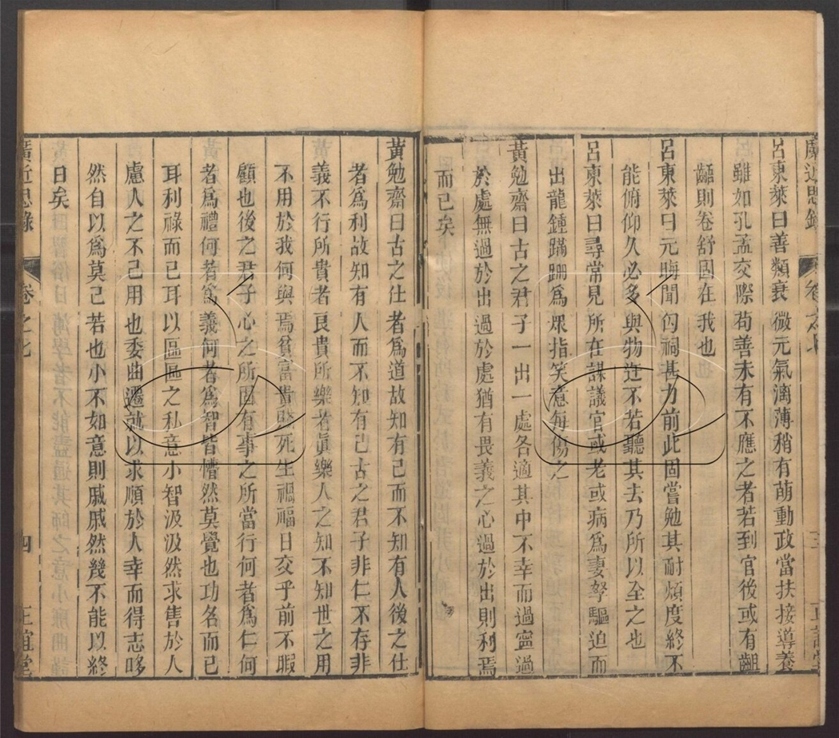 廣近思錄
呂東萊曰善類衰微元氣漓薄稍有萌動政當扶接導養
雖如孔孟交際苟善未有不應之者若到官後或有齟
齬則卷舒固在我也
呂東萊曰元晦聞囚祠甚力前此固嘗勉其耐煩度終不
能俯仰久必多與物迕不若聽其去乃所以全之也
呂東萊曰尋常見所在謀議官或老或病為妻孥驅迫而
出龍鍾蹣跚為眾指笑意每傷之
黃勉齋曰古之君子一出一處各適其中不幸而過寧過
於處無過於出過於處猶有畏義之心過於出則利焉
而已矣
黃勉齋曰古之仕者為道故知有己而不知有人後之仕
者為利故知有人而不知有己古之君子非仁不存非
義不行所貴者良貴所樂者眞樂人之知不知世之用
不用於我何與焉貧富貴賤死生禍福日交乎前不暇
顧也後之君子心之所固有事之所當行何者為仁何
者為禮何者為義何者為智皆懵然莫覺也功名而已
耳利祿而已耳以區區之私意小智汲汲然求售於人
慮人之不己用也委曲遷就以求順於人幸而得志哆
然自以為莫己若也小不如意則戚戚然幾不能以終
日矣
廣近思錄 卷之七 四 正誼堂